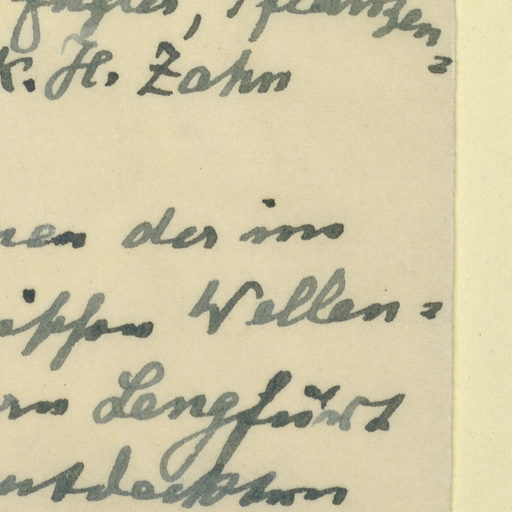 Pflanzen-
K. H. Zahn
nen der im
ischen Wellen-
ern Lengfurt
entdeckten